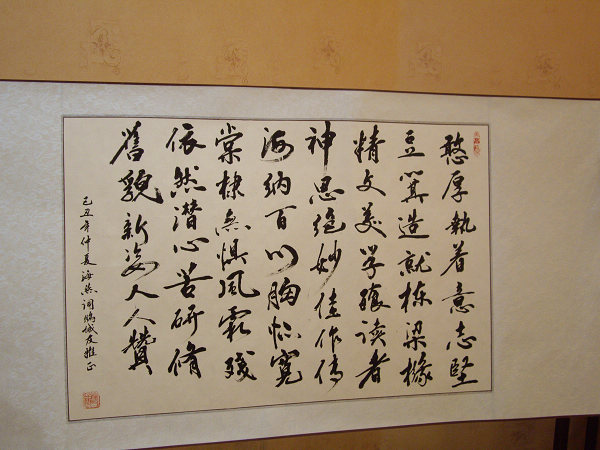 憨厚執着意志堅
豆箕造就栋梁椽
精文美学飨读者
神思绝妙佳作传
海纳百川胸怀寬
棠棣无惧风霜残
依然潜心苦研脩
舊貌新姿人人赞
己丑年仲夏海 词鹏城友雅正